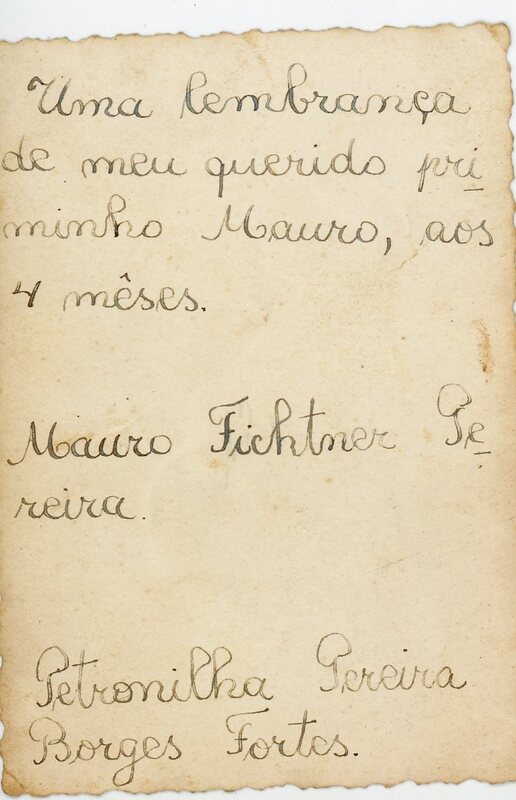 Uma lembrança
de meu querido pri-
minho Mauro, aos
4 mêses.
Mauro Fichtner Pe-
reira.
Petronilha Pereira
Borges Fortes.